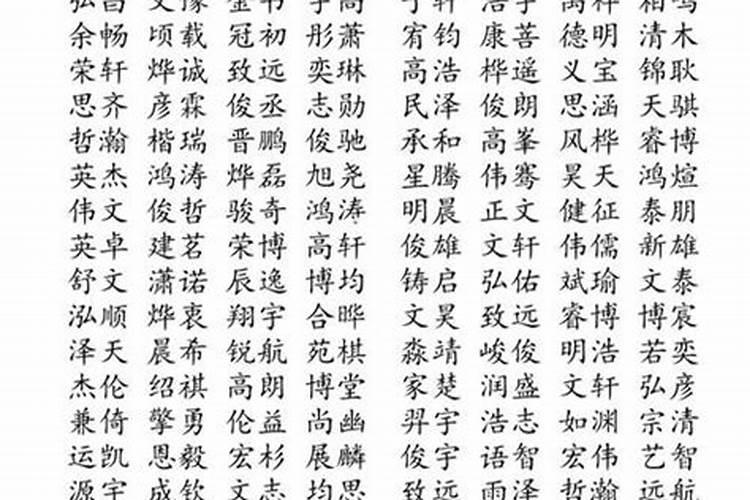 余畅 顷载 冠初 彤萧 宥钧 康菩 德明 清木
荣轩 烨诚 致远 奕琳 高浩 桦遥 义宝 锦耿
思齐 彦霖 俊丞 志勋 民泽 俊朗 思涵 天骐
哲瀚 楷瑞 晋鹏 俊驰 承和 高峯 风桦 睿博
英杰 鸿涛 烨磊 旭尧 星腾 伟骞 昊天 鸿煊
伟文 俊哲 骏奇 鸿涛 明晨 正文 健征 泰朋
英卓 建茗 荣博 高轩 俊雄 文轩 伟儒 新雄
舒文 潇诺 辰逸 博均 铸启 弘佑 斌瑜 文泰
泓顺 烨衷 翔宇 合晔 文昊 致远 睿博 博宸
泽天 晨希 锐航 苑棋 淼靖 峻俊 明浩 若奕
杰伦 绍祺 高朗 博堂 家楚 润盛 文轩 弘彦
兼倚 擎勇 伦益 尚幽 羿宇 浩志 如渊 宗清
运凯 恩毅 宏杉 展麟 俊宇 语智 宏伟 艺智
源宇 成钦 文志 均思 致远 雨泽 哲瀚 远航